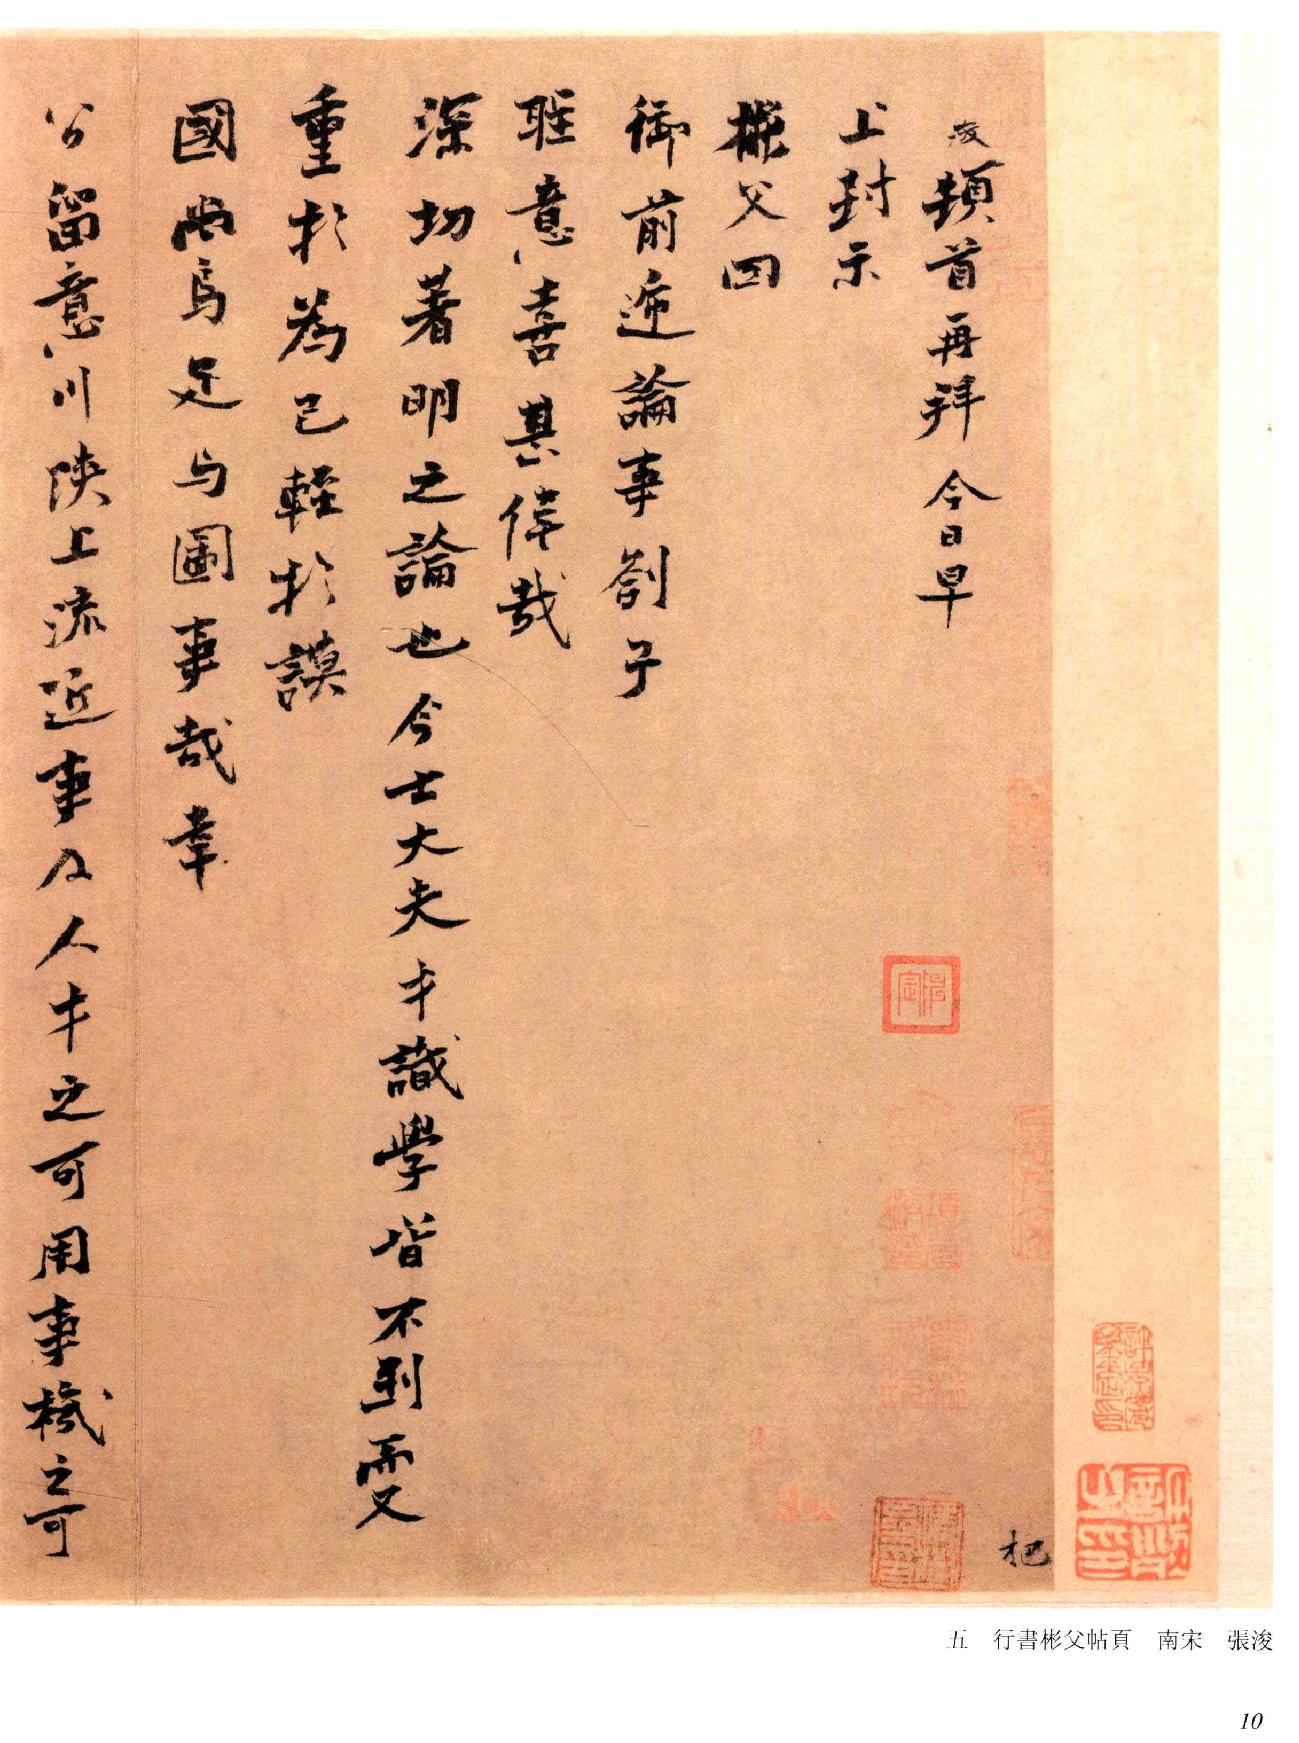 浚頓首再拜今日早
上封示
彬父四
御前遞論事劄子
聖意喜甚偉哉
深切著明之論也今士大夫才識學皆不到要
重於為己輕於謨
國尚烏足与圖事哉幸
公留意川陝上流近事及人才之可用事機之可
杞
五 行書彬父帖頁 南宋 張浚
10